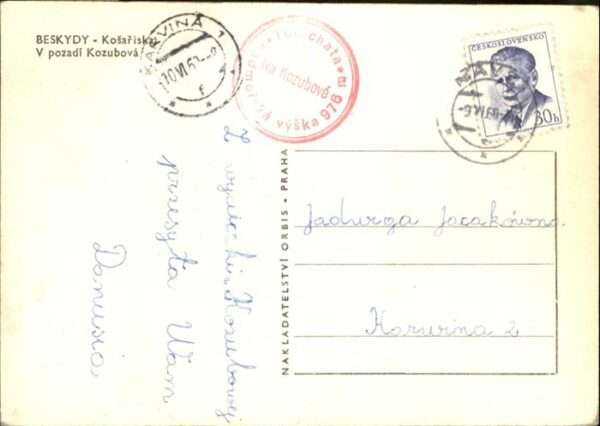 BESKYDY - Košařiska
V pozadí Kozubová
KARVINÁ 1
10.VI.6
f
chata
Kozubová
výška 976 m
ČESKOSLOVENSKO
30h
Z wycieczki Kozubowej
przesyła Wam
Danusia
NAKLADATELSTVÍ ORBIS - PRAHA
Jadwiga
Karwina 2